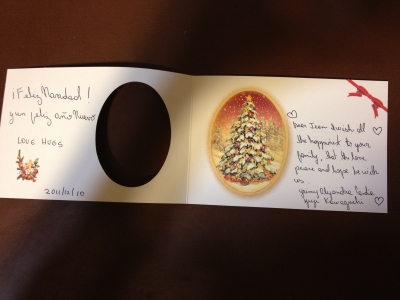 ¡Feliz Navidad!
y un feliz año Nuevo
LOVE HUGS
2011/12/10
Dear Jean I wish all
the happiness to your
family, that the love,
peace and hope be with
us.
Yumy Alejandra
Yuji Kawaguchi